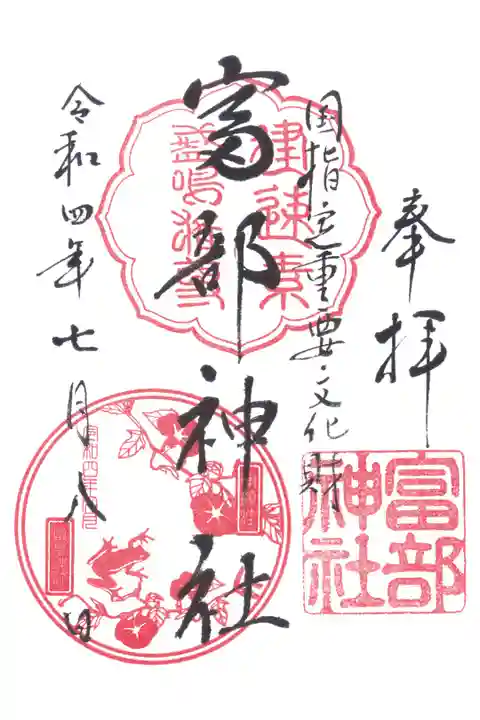 奉拝
国指定重要文化財
富部神社
令和四年七月八日
建速素
盞嗚尊
富部
神社
令和四年七月